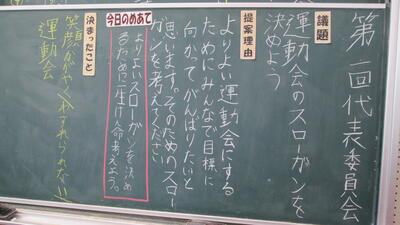 第一回代表委員会
議題
運動会のスローガンを
決めよう
提案理由
よりよい運動会にする
ためにみんなで目標に
向かってがんばりたいと
思います。そのためのスロー
ガンを考えてください
今日のめあて
よりよいスローガンを決め
るために一生けん命考えよう。
決まったこと
笑顔かがやくわすれられない
運動会